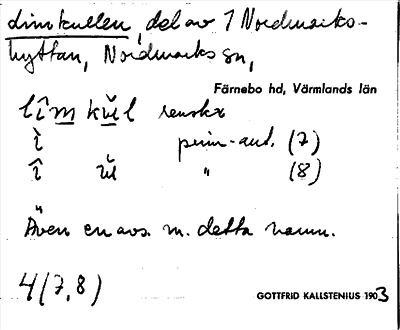 Limkullen, del av 1 Nordmarks-
hyttan, Nordmarks sn,
Färnebo hd, Värmlands län
lîm kŭl
ì prim-ant. (7)
î ŭl " (8)
Även en avs. m. detta namn.
4 (7,8)
GOTTFRID KALLSTENIUS 1903